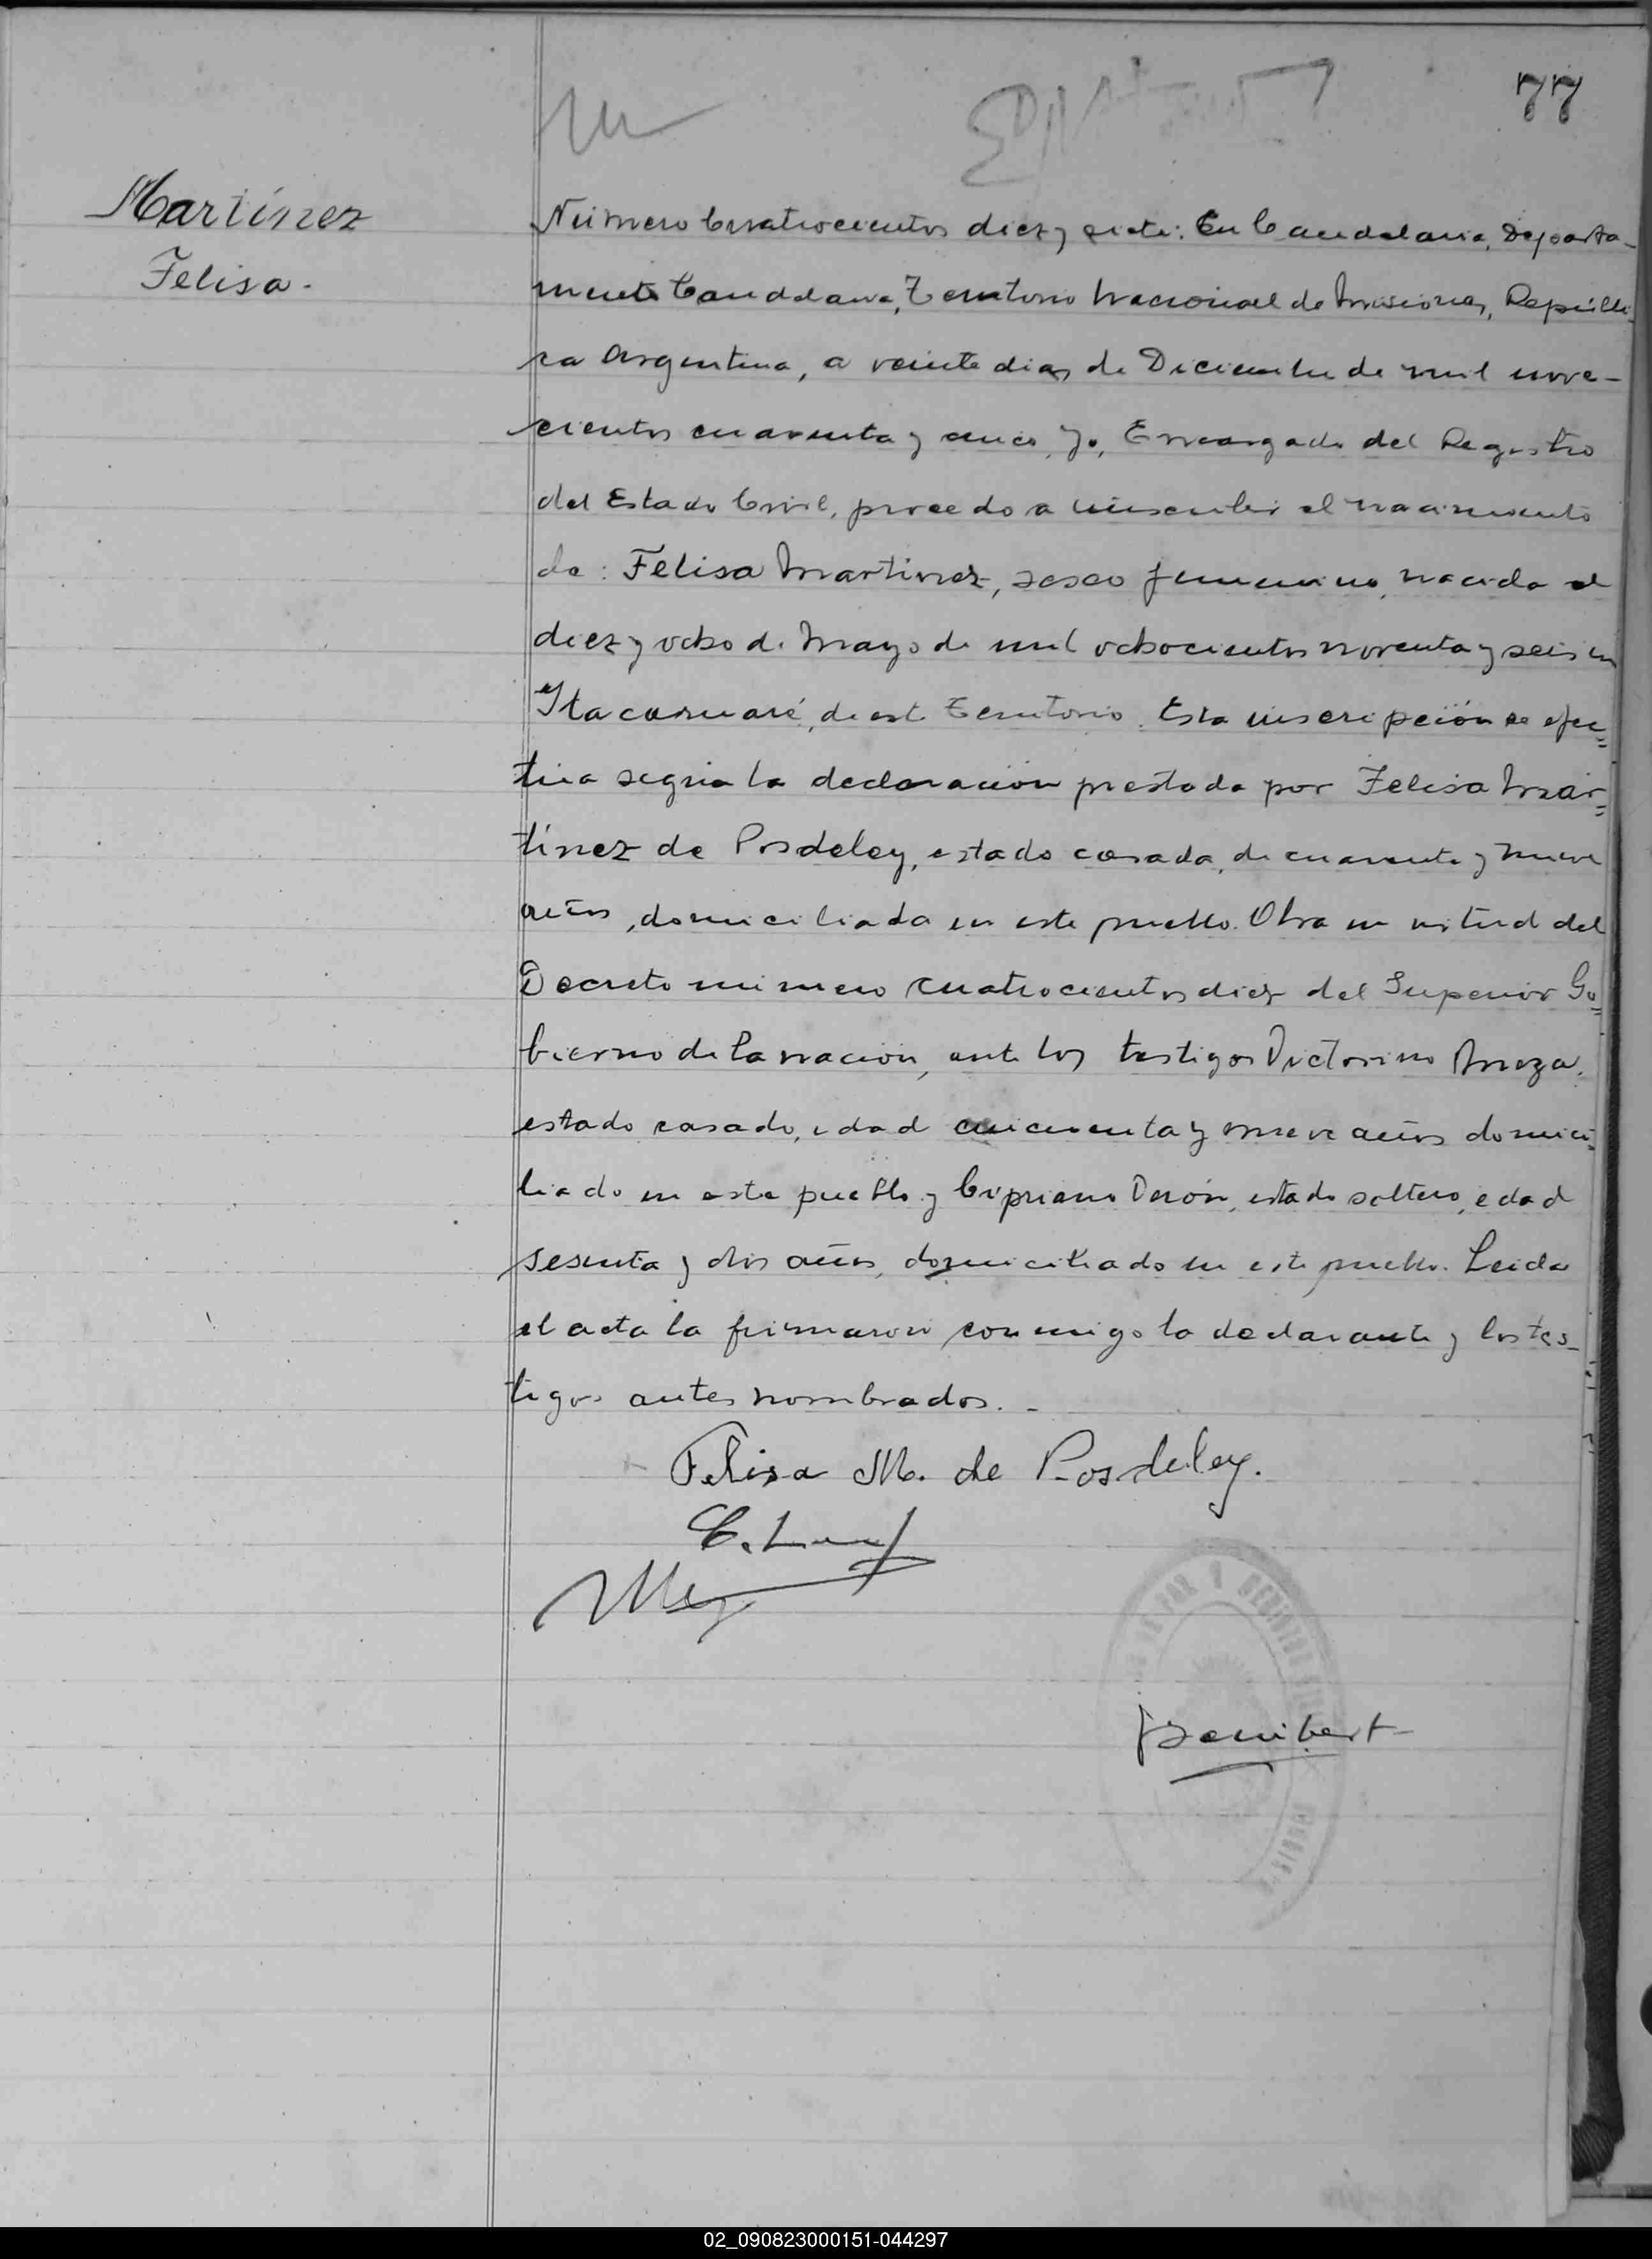 77
Martínez
Felisa.
Número Cuatrocientos diez y siete: En Candelaria, Departa-
mento Candelaria, Territorio Nacional de Misiones, Repúbli-
ca Argentina, a veinte dias de Diciembre de mil nove-
cientos cuarenta y cinco, Yo, Encargado del Registro
del Estado Civil, procedo a inscribir el nacimiento
de: Felisa Martinez, sexo femenino, nacida el
diez y ocho de Mayo de mil ochocientos noventa y seis en
Itacaruaré, de este Territorio. Esta inscripción se efec=
túa según la declaración prestada por Felisa Mar=
tínez de Posdeley, estado casada, de cuarenta y nueve
años, domiciliada en este pueblo. Obra en virtud del
Decreto número cuatrocientos diez del Superior Go=
bierno de la nación, ante los testigos Victorino
estado casado, edad cincuenta y nueve años domici=
liado en este pueblo y Cipriano estado soltero, edad
sesenta y dos años, domiciliado en este pueblo. Leida
el acta la firmaron conmigo la declarante y los tes-
tigos antes nombrados. -
Felisa M. de Posdeley.
02_090823000151-044297